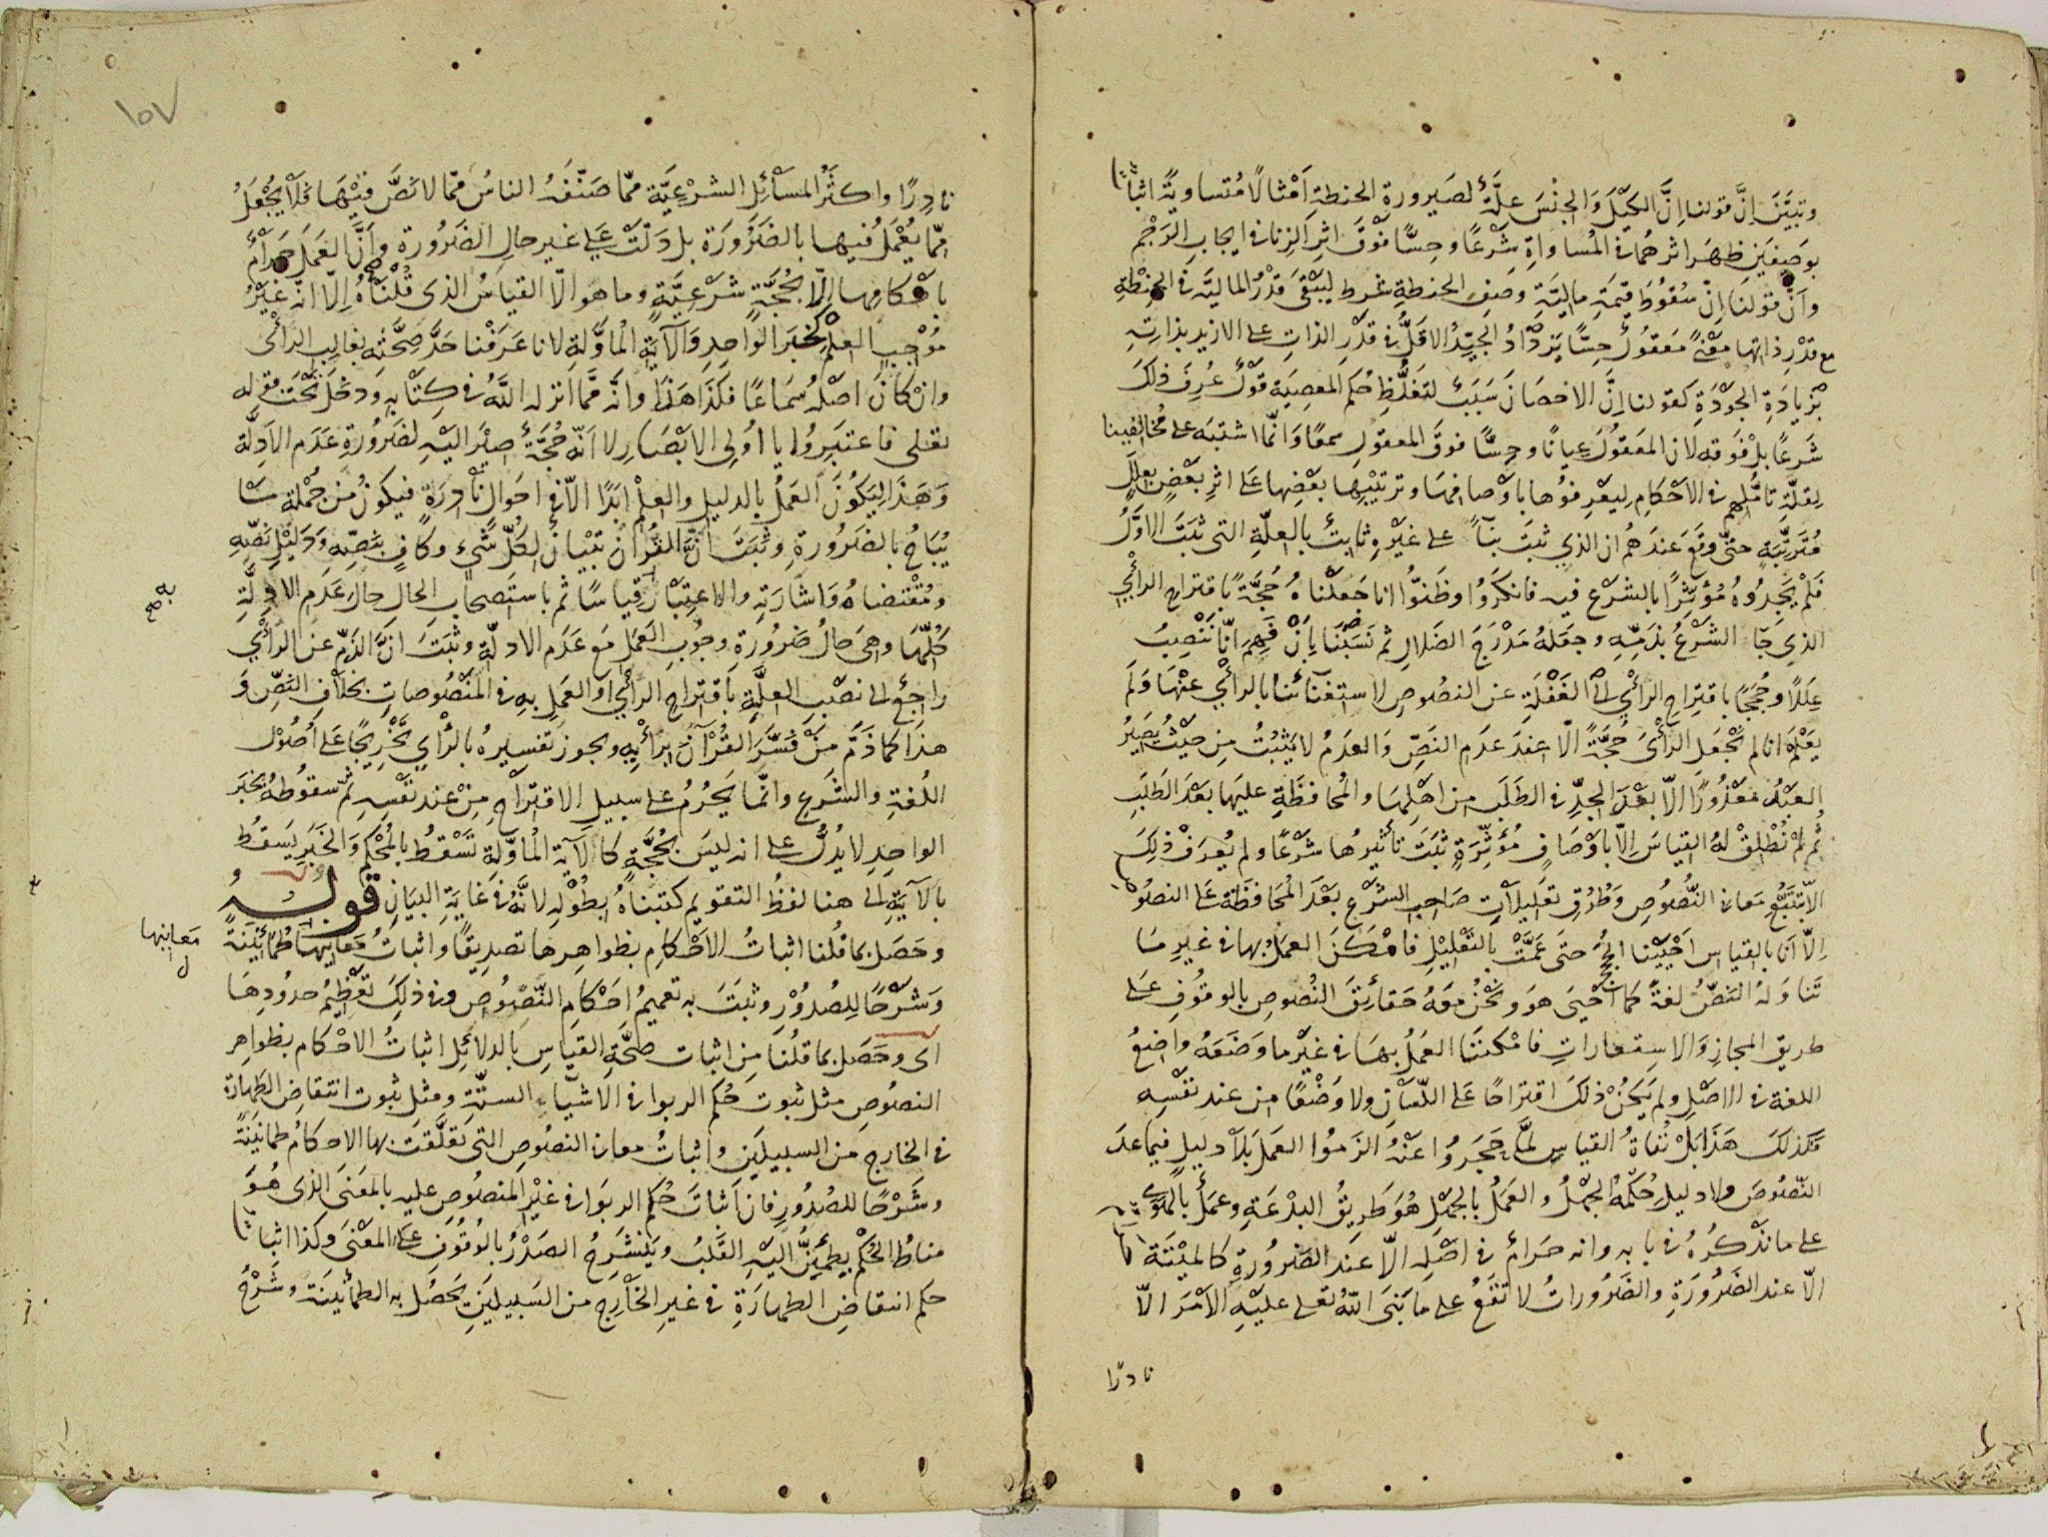 وتبيّن انّ قولنا انّ الكيل والجنس علّة لصيرورة الحنطة امثالا متساوية اثباتا
بوصفين ظهر اثرهما في المساواة شرعا وحسّا فوق اثر الزنا في ايجاب الرجم
وانّ قولنا انّ سقوط قيمة مالية وصف الحنطة شرط ليبقى قدر المالية في الحنطة
مع قدر ذاتها معنى معقول حسّا يزداد الجيّد الاقلّ في قدر الذات على الازيد بذاته
بزيادة الجودة كقولنا انّ الاحصان سبب لتغلّظ حكم المعصية قول عرف ذلك
شرعا بل فوقه لان المعقول عيانا وحسّا فوق المعقول سمعا وانّما اشتبه على مخالفينا
لقلّة تاملهم في الاحكام ليعرفوها باوصافها وترتيبها بعضها على اثر بعض بعلل
مترتّبة حتّى وقع عندهم ان الذي ثبت بناء على غيره ثابت بالعلّة التي ثبت الاوّل
فلم يجدوه مؤثّرا بالشرع فيه فانكروا وظنّوا انا جعلناه حجّة باقتراح الرأي
الذي جاء الشرع بذمّه وجعله مدرج الضلال ثم نسبنا بان فهم انّا ننصب
عللا وحججا باقتراح الرأي الى الغفلة عن النصوص لاستغنائنا بالرأي عنها ولم
يعلم انا لم نجعل الرأي حجّة الّا عند عدم النصّ والعدم لا يثبت من حيث يصير
العبد معذورا الّا بعد الجدّ في الطلب من اهلها والمحافظة عليها بعد الطلب
ثم لم نطلق له القياس الّا باوصاف مؤثّرة ثبت تأثيرها شرعا ولم يعرف ذلك
الّا بتتبّع معاني النصوص وطرق تعليلات صاحب الشرع بعد المحافظة على النصوص
الّا انّا بالقياس احيينا الحجج حتى عمّت بالتعليل فامكن العمل بها في غير ما
تناوله النصّ لغة كما احيى هو ونحن معه حقائق النصوص بالوقوف على
طريق المجاز والاستعارات فامكننا العمل بها في غير ما وضعه واضع
اللغة في الاصل ولم يكن ذلك اقتراحا على اللسان ولا وضعا من عند نفسه
فكذلك هذا بل نفاة القياس لمّا حجروا عنه الزموا العمل بلا دليل فيما عدا
النصوص ولا دليل حكمه الجهل والعمل بالجهل هو طريق البدعة وعمل بالهوى
على ما نذكره في بابه وانه حرام في اصله الّا عند الضرورة كالميتة
الّا عند الضرورة والضرورات لا تقع على ما بنى الله تعلى عليه الامر الّا
نادرا
١٥٧
نادرا واكثر المسائل الشرعيّة ممّا صنّفه الناس ممّا لا نصّ فيها فلا يجعل
ممّا يعمل فيها بالضرورة بل دلّت على غير حال الضرورة وانّ العمل حرام
باحكامها الّا بحجّة شرعيّة وما هو الّا القياس الذي قلناه الّا انّه غير
موجب العلم كخبر الواحد والآية الماوّلة لانا عرفنا حدّ صحّته بغالب الرأي
وان كان اصله سماعا فكذا هذا وانّه ممّا انزله اللّه في كتابه ودخل تحت قوله
تعلى فاعتبروا يا اولى الابصار لا انّه حجّة اصير اليه لضرورة عدم الادلّة
وهذا ليكون العمل بالدليل والعلم ابدا الّا في احوال نادرة فيكون من جملة ما
يباح بالضرورة وثبت انّ القرآن تبيان لكلّ شيء وكاف بنصّه ودليل نصّه
ومقتضاه واشارته والاعتبار قياسا ثم باستصحاب الحال حال عدم الادلّة
كلّها وهي حال ضرورة وجوب العمل مع عدم الادلّة وثبت انّ الذمّ عن الرأي
راجع الى نصب العلّة باقتراح الرأي او العمل به في المنصوصات بخلاف النصّ و
هذا كما ذمّ من فسّر القرآن برأيه ويجوز تفسيره بالرأي تخريجا على اصول
اللغة والشرع وانّما يحرم على سبيل الاقتراح من عند نفسه ثمّ سقوطه بخبر
الواحد لا يدلّ على انه ليس بحجّة كالآية الماوّلة تسقط بالمحكم والخبر يسقط
بالآية الى هنا لفظ التقويم كتبناه بطوله لانّه في غاية البيان قوله
وحصل بما قلنا اثبات الاحكام بظواهرها تصديقا واثبات معانيها طمأنينة
معانيها
وشرحا للصدور وثبت به تعميم احكام النصوص وفي ذلك تعظيم حدودها
اى وحصل بما قلنا من اثبات صحّة القياس بالدلائل اثبات الاحكام بظواهر
النصوص مثل ثبوت حكم الربوا في الاشياء الستّة ومثل ثبوت انتقاض الطهارة
في الخارج من السبيلين واثبات معاني النصوص التي تعلّقت بها الاحكام طمانينة
وشرحا للصدور فان اثبات حكم الربوا في غير المنصوص عليه بالمعنى الذي هو
مناط الحكم يطمئنّ اليه القلب وينشرح الصدر بالوقوف على المعنى وكذا اثبات
حكم انتقاض الطهارة في غير الخارج من السبيلين يحصل به الطمأنينة وشرح